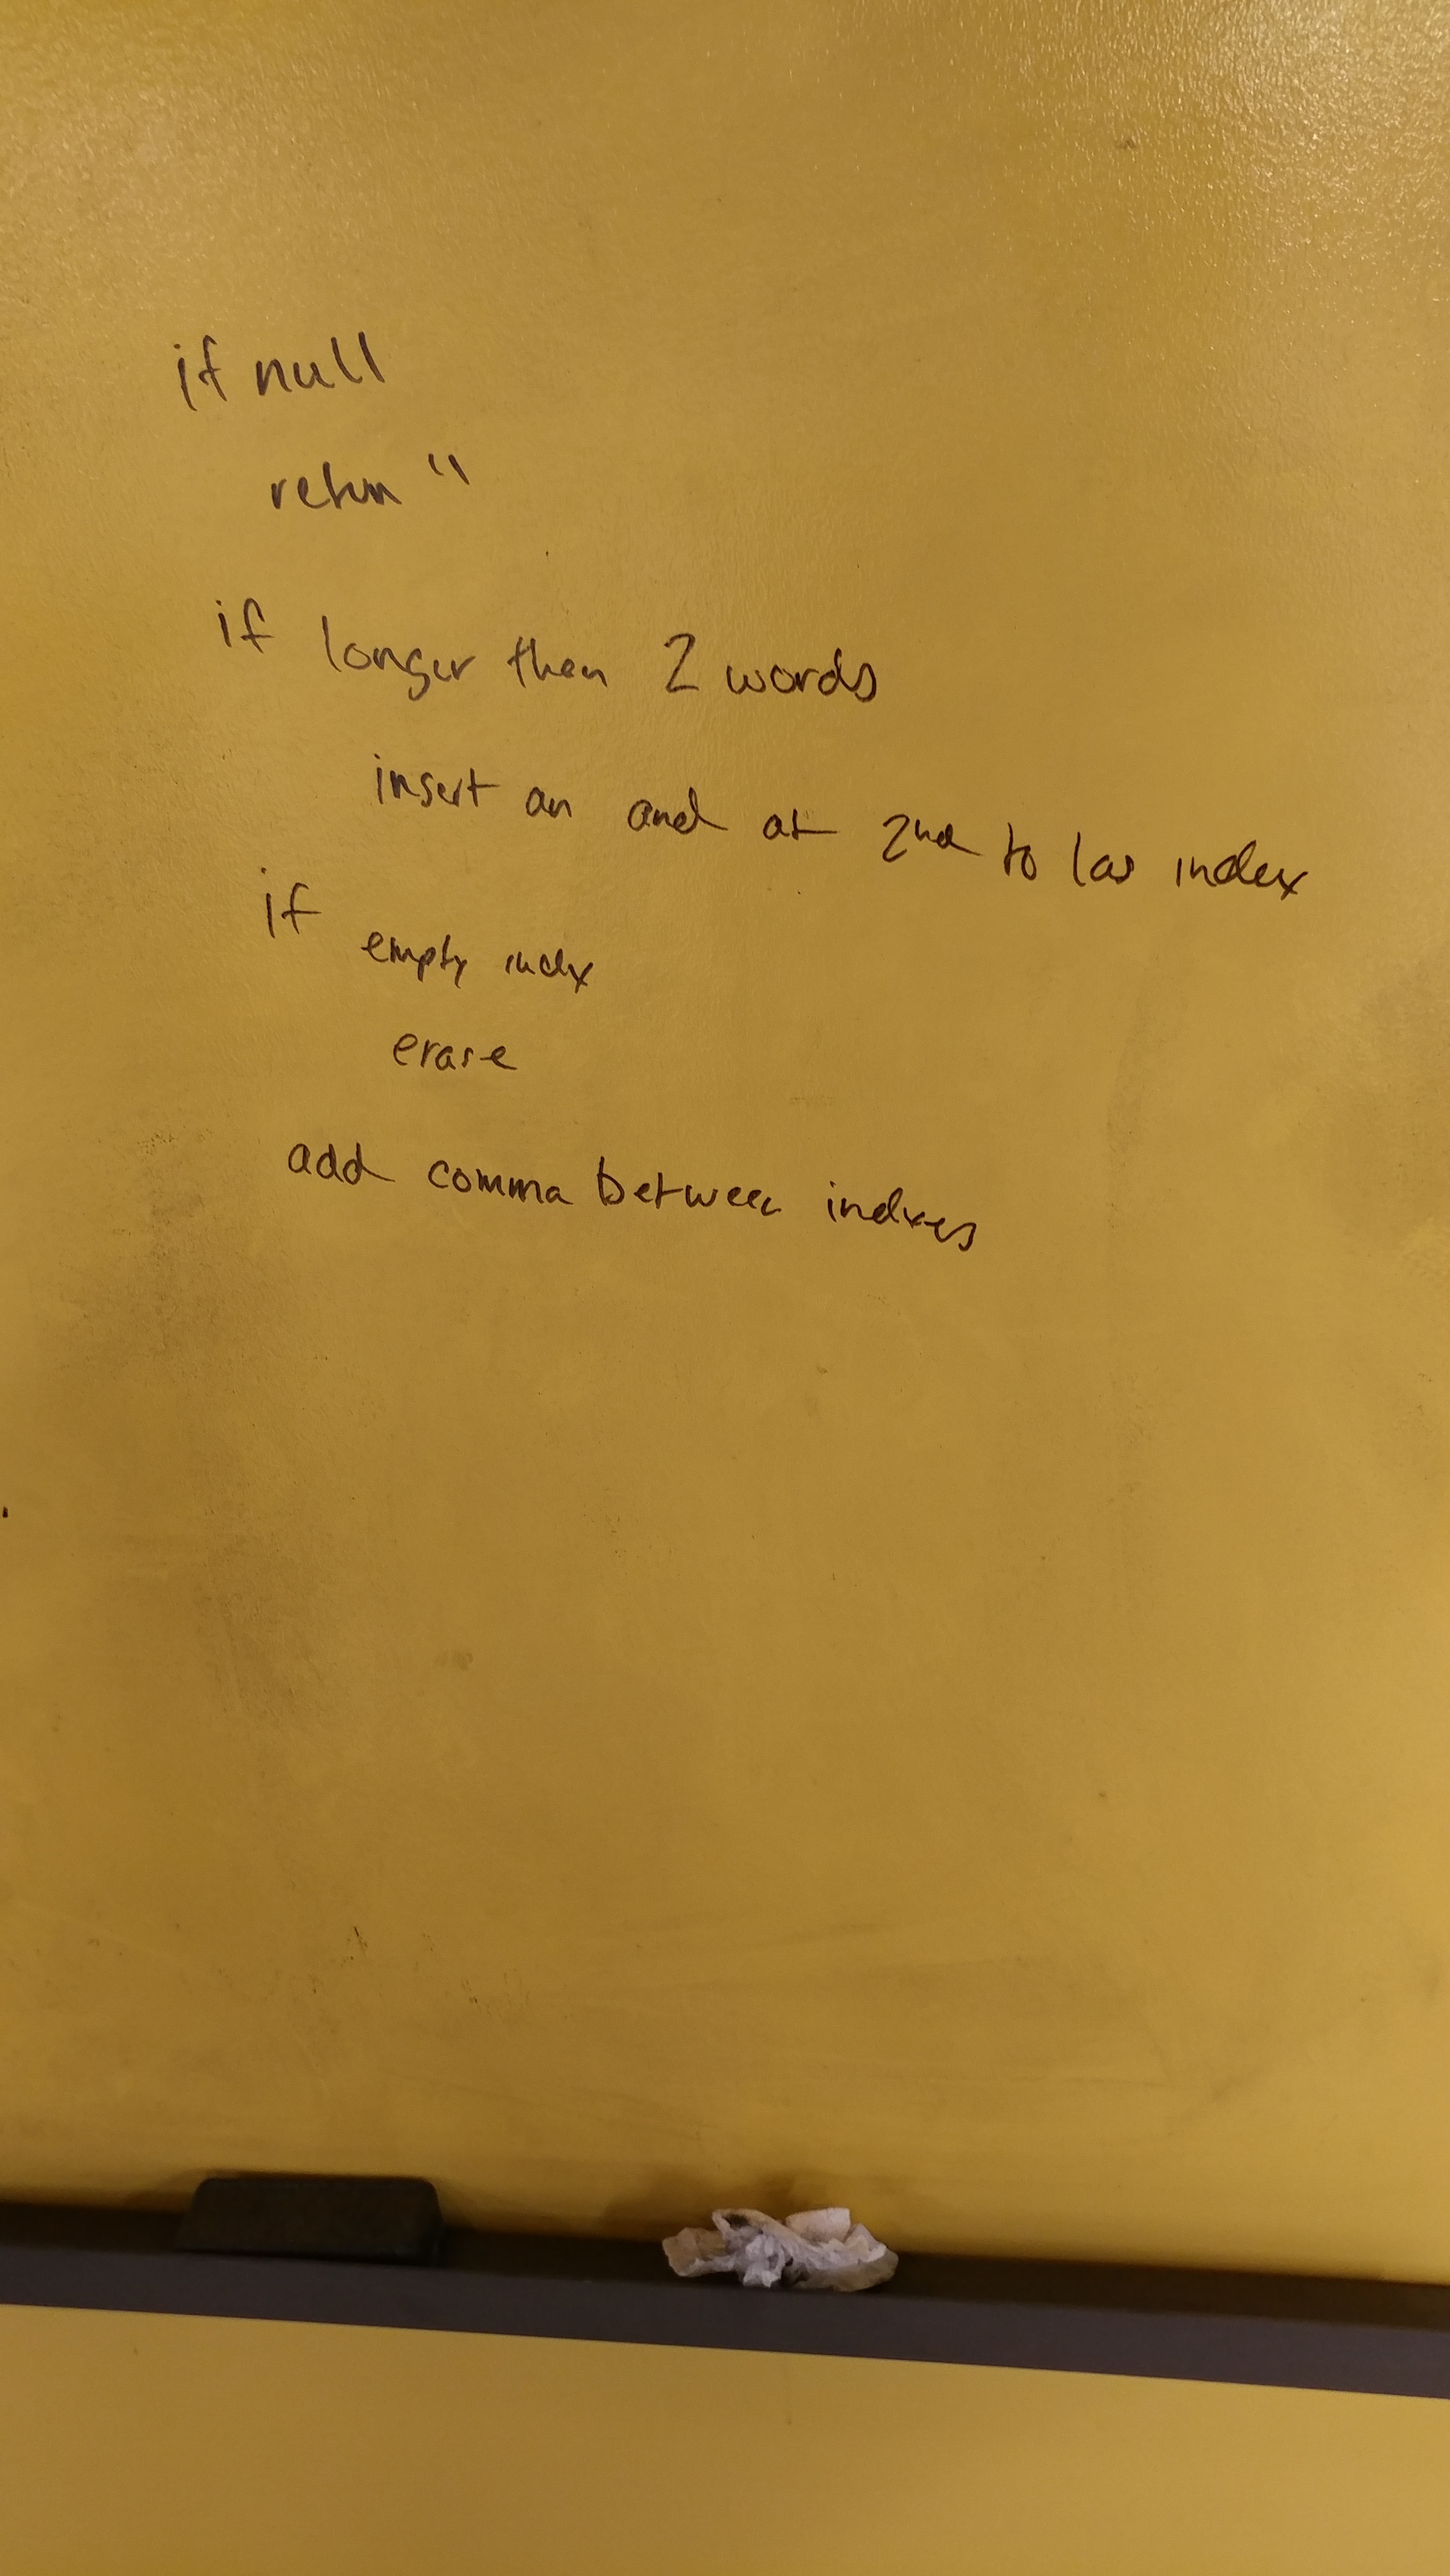 if null
return ''
if longer then 2 words
insert an and at 2nd to las index
if empty index
erase
add comma between indexes